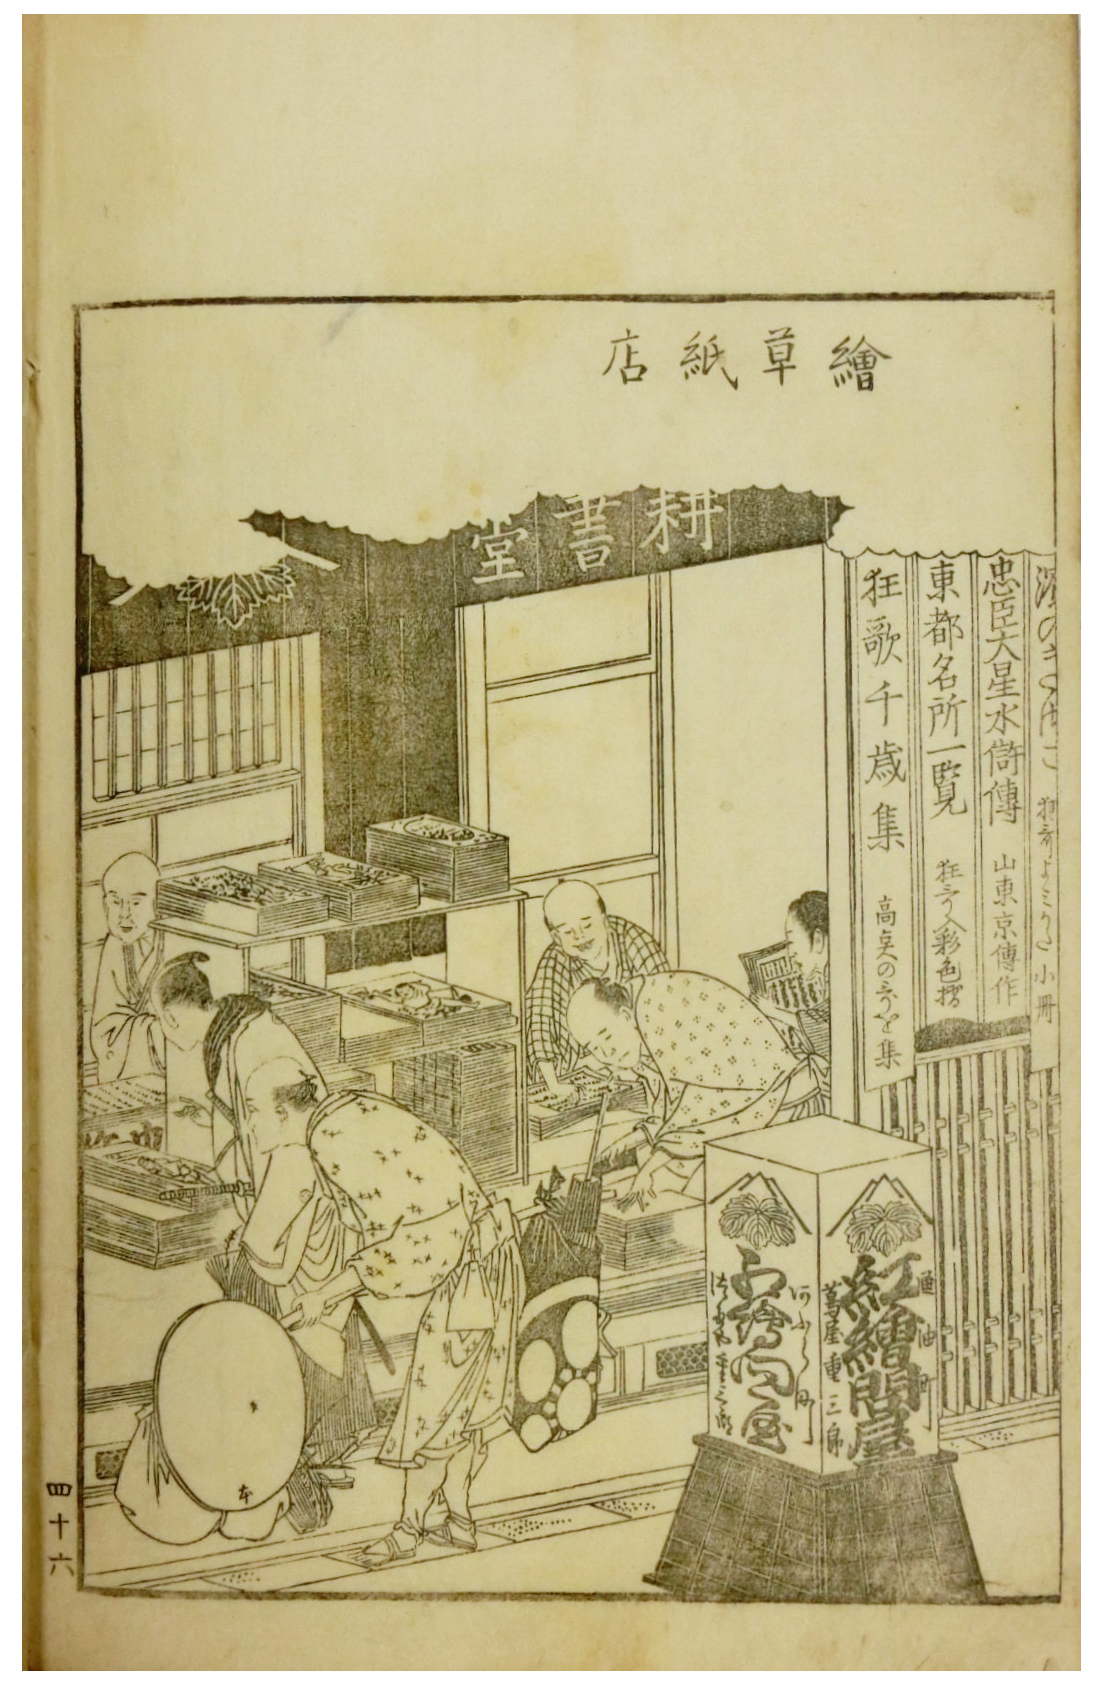 繪草紙店
耕書堂
濱のきさご 狂哥よみかた 小冊
忠臣大星水滸傳 山東京傳作
東都名所一覧 狂哥入彩色摺
狂歌千歳集 高点の哥を集
通油町
紅繪問屋
蔦屋重三郎
四十六